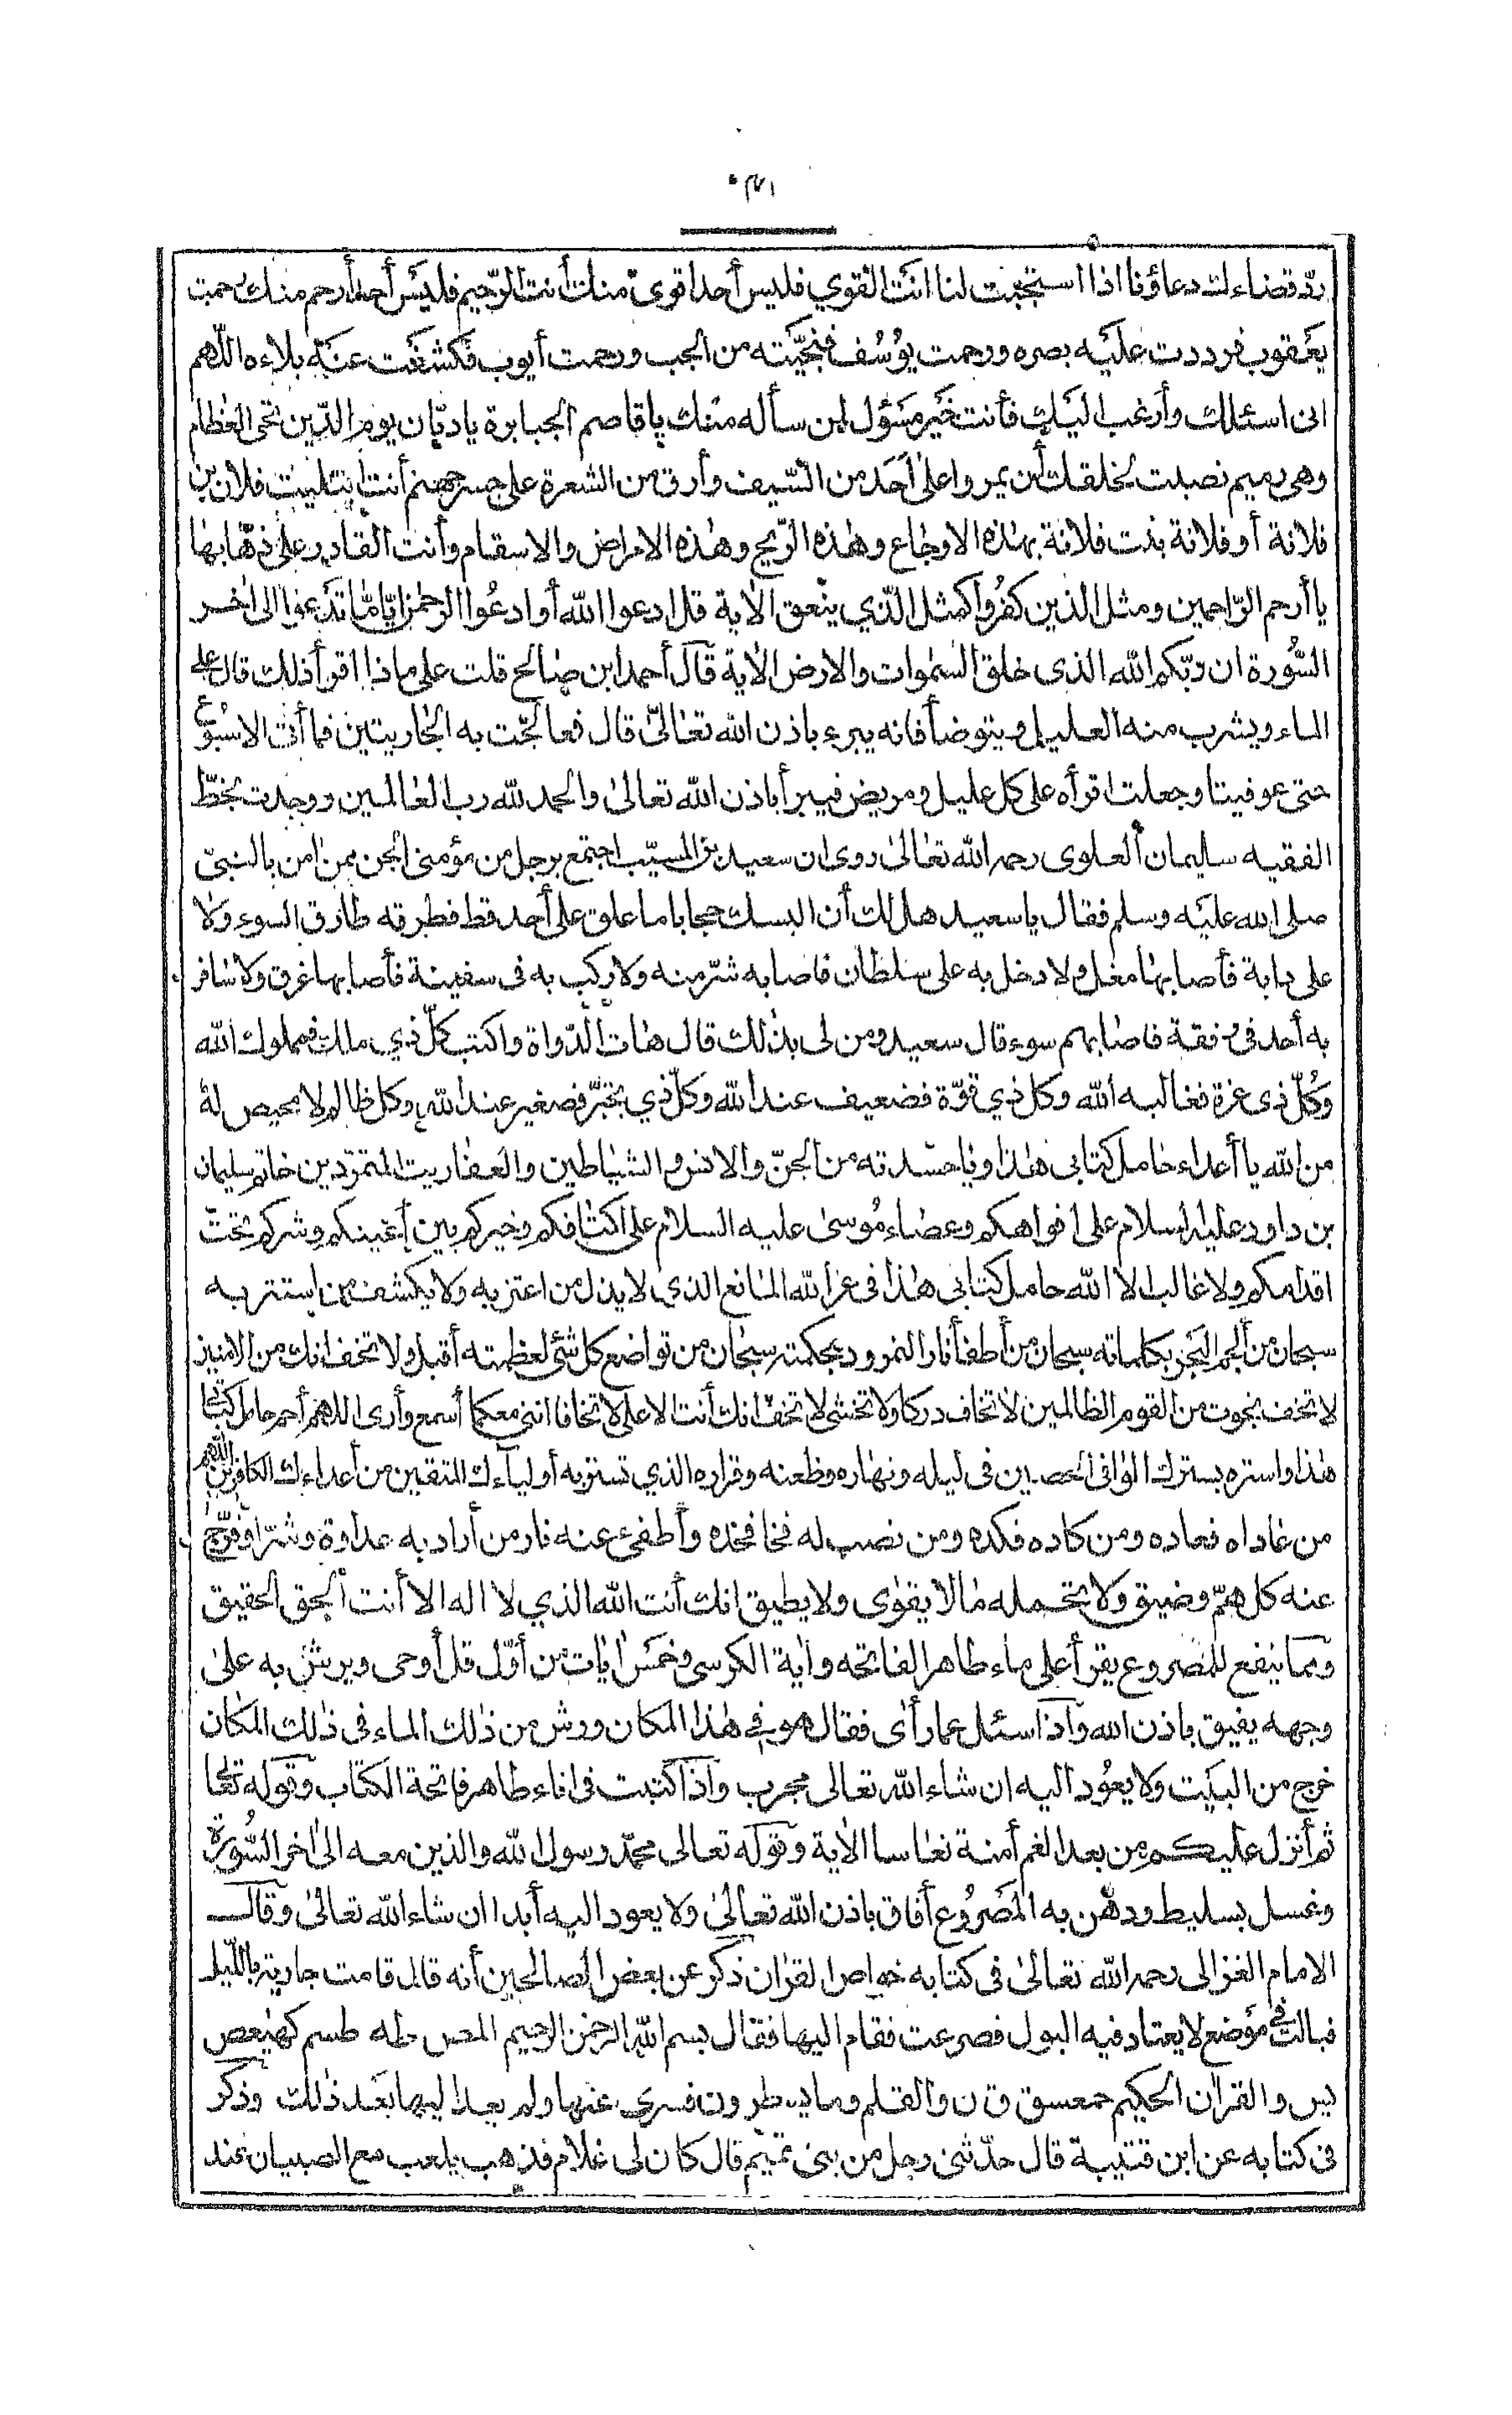 ردّ قضاءك دعاؤنا اذا استجبت لنا انت القوي فليس أحد اقوى منك أنت الرّحيم فليس أحد أرحم منك رحمت
يعقوب فرددت عليه بصره ورحمت يوُسُف فنجّيته من الجب ورحمت أيوب فكشفت عنه بلاءه اللّهم
انى اسئلك وأرغب اليك فأنت خير مسؤل لمن سأله منك يا قاصم الجبابرة يا ديّان يوم الدّين تحى العظام
وهى رميم نصبت لخلقك أن يمروا على أحَد من السّيف وأرق من الشعرة على جسر جهنم أنت ابتليت فلان بن
فلانة أو فلانة بنت فلانة بهذه الاوجاع وهذه الرّيح وهذه الامراض والاسقام وأنت القادر على ذهابها
يا أرحم الرّاحمين ومثل الذين كفرُوا كمثل الّذي ينعق الاٰية قل ادعوا الله أو ادعُوا الرحمٰن ايّامّا تدعوا الى اٰخر
السُّورة ان ربّكم الله الذى خلق السمٰوات والارض الاٰية قال أحمد ابن صالح قلت على ماذا اقرأ ذلك قال على
الماء ويشرب منه العليل ويتوضأ فانه يبرء باذن الله تعالىٰ قال فعالجت به الجاريتين فما أتى الاسبُوع
حتى عوفيتا وجعلت اقرأه على كل عليل ومريض فيبرأ باذن الله تعالىٰ والحمد لله رب العٰالمين ووجدت بخطّ
الفقيه سليمان العلوى رحمه الله تعالىٰ روى ان سعيد بن المسيّب اجتمع برجل من مؤمنى الجن ممن اٰمن بالنبيّ
صلى الله عليه وسلم فقال يا سعيد هل لك أن البسك حجابا ما علق على أحد قط فطرقه طارق السوء ولا
على دابة فأصابها مغل ولا دخل به على سلطان فاصابه شرّ منه ولا ركب به فى سفينة فأصابها غرق ولا سافر
به أحد فى رفقة فاصابهم سوء قال سعيد ومن لى بذلك قال هات الدّواة واكتب كلّ ذي ملك فمملوك الله
وكُلّ ذى عزة فغالبه الله وكل ذي قوّة فضعيف عند الله وكلّ ذي تجبّر فصغير عند الله وكل ظالم لا محيص له
من الله يا أعداء حامل كتابى هذا ويا حسدته من الجنّ والانس والشياطين والعفاريت المتمرّدين خاتم سليمان
بن داود عليه السلام على افواهكم وعصاء مُوسىٰ عليه السلام على اكتافكم وخيركم بين أعينكم وشركم تحت
اقدامكم ولا غالب الا الله حامل كتابى هذا فى عز الله المانع الذي لا يذل من اعتز به ولا يكشف من استتر به
سبحان من ألجم البحر بكلماته سبحان من أطفأ نار النمرود بحكمته سبحان من تواضع كل شئ لعظمته أقبل ولا تخف انك من الاٰمنين
لا تخف نجوت من القوم الظالمين لا تخاف دركا ولا تخشى لا تخف انك أنت الاعلى لا تخافا اننى معكما أسمع وأرى اللهم أحم حامل كتابى
هذا واستره بسترك الوافى الحصين فى ليله ونهاره وظعنه وقراره الذي تستر به أولياءك المتقين من أعداءك الكافرين اللهم
من عاداه فعاده ومن كاده فكده ومن نصب له فخا فخذه وأطفئ عنه نار من أراد به عداوة وشرّا وفرّج
عنه كل همّ وضيق ولا تحمله ما لا يقوٰى ولا يطيق انك أنت الله الذي لا اله الا أنت الحق الحقيق
ومما ينفع للمصروع يقرأ على ماء طاهر الفاتحه واٰية الكرسى وخمس اٰيات من أوّل قل أوحى ويرش به علىٰ
وجهه يفيق باذن الله واذا سئل عما رأى فقال هو في هذا المكان ورش من ذلك الماء فى ذلك المكان
خرج من البيت ولا يعُود اليه ان شاء الله تعالى مجرب واذا كتبت فى اناء طاهر فاتحة الكتاب وقوله تعالى
ثم أنزل عليكم من بعد الغم أمنة نعاسا الاٰية وقوله تعالى محمّد رسول الله والذين معه الىٰ اٰخر السُّورة
وغسل بسليط ودهن به المصرُوع أفاق باذن الله تعالىٰ ولا يعود اليه أبدا ان شاء الله تعالىٰ وقال
الامام الغزالى رحمه الله تعالىٰ فى كتابه خواص القراٰن ذكر عن بعض الصالحين أنه قال قامت جارية بالليل
فبالت في موضع لا يعتاد فيه البول فصرعت فقام اليها فقال بسم الله الرحمٰن الرحيم المص طه طسم كهيعص
يس والقراٰن الحكيم حمعسق ق ن والقلم وما يسطرون فسري عنها ولم يعد اليها بعد ذٰلك وذكر
فى كتابه عن ابن قتيبة قال حدّثنى رجل من بنى تميم قال كان لى غلام فذهب يلعب مع الصبيان عند